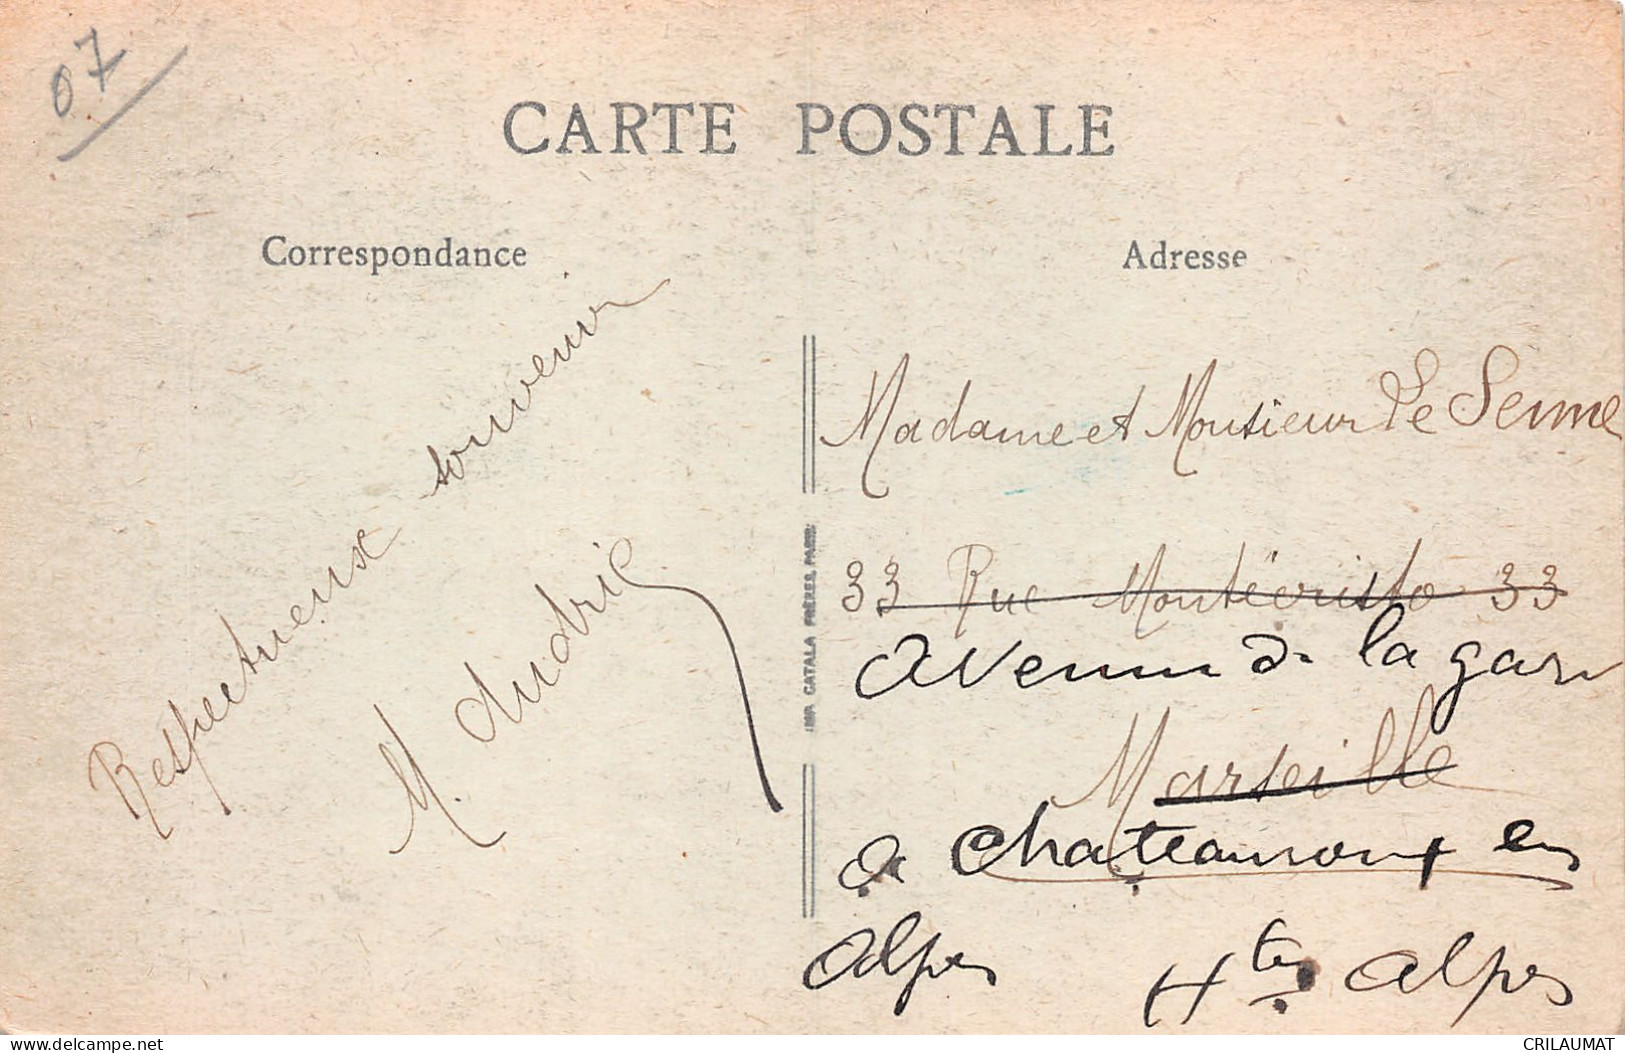 07
CARTE POSTALE
Correspondance
Respectueux souvenir
M. Audric
IMP. CATALA FRÈRES, PARIS
Adresse
Madame et Monsieur Le Senne
33 Rue Montécristo 33
avenue de la gare
Marseille
a chateauroux en
alpes Htes alpes
delcampe.net
CRILAUMAT